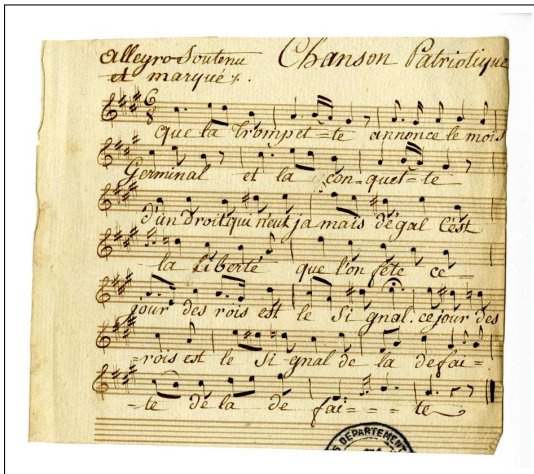 Allegro Soutenu Chanson Patriotique
et marqué
que la Trompet=te annonce le mois
Germinal et la con=quet=te
d'un droit qui n'eut jamais d'égal C'est
la Liberté que l'on fête ce
jour des rois est le Si gnal. ce jour des
=rois est le Si gnal de la defai=
=te de la de fai===te
DÉPARTEMENT